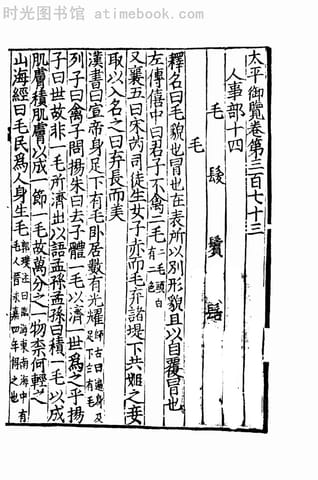 时光图书馆 - atimebook.com
太平御覽卷第三百七十三
人事部十四
毛 髮 鬢 髯
毛
釋名曰毛貌也冒也在表所以別形貌且以自覆冒也
左傳僖中曰君子不禽二毛二毛頭白有二色
又襄五曰宋芮司徒生女子赤而毛弃諸堤下共姬之妾
取以入名之曰弃長而美
漢書曰宣帝身足下有毛卧居數有光耀師古曰遍身及足下皆有毛
列子曰禽子問楊朱曰去子體一毛以濟一世爲之乎揚
子曰世故非一毛所濟出以語孟孫孟孫曰積一毛以成
肌膚積肌膚以成一節一毛故萬分之一物柰何輕之
山海經曰毛民爲人身生毛郭璞注曰臨海東南海中有毛人晉永嘉四年得之也